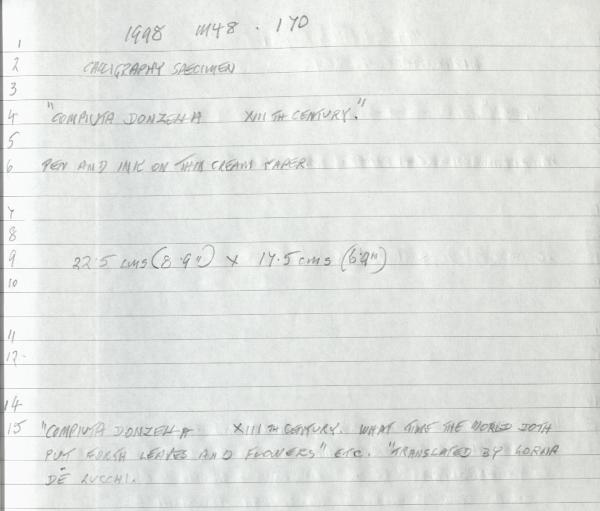 1998 M48 . 170
1
2 CALLIGRAPHY SPECIMEN
3
4 "COMPIUTA DONZELLA XIII TH CENTURY."
5
6 PEN AND INK ON THIN CREAM PAPER
7
8
9 22.5 cms (8.9") X 17.5 cms (6.9")
10
11
12.
14
15 "COMPIUTA DONZELLA XIII TH CENTURY. WHAT TIME THE WORLD DOTH
PUT FORTH LEAVES AND FLOWERS" ETC. "TRANSLATED BY LORNA
DE LUCCHI.